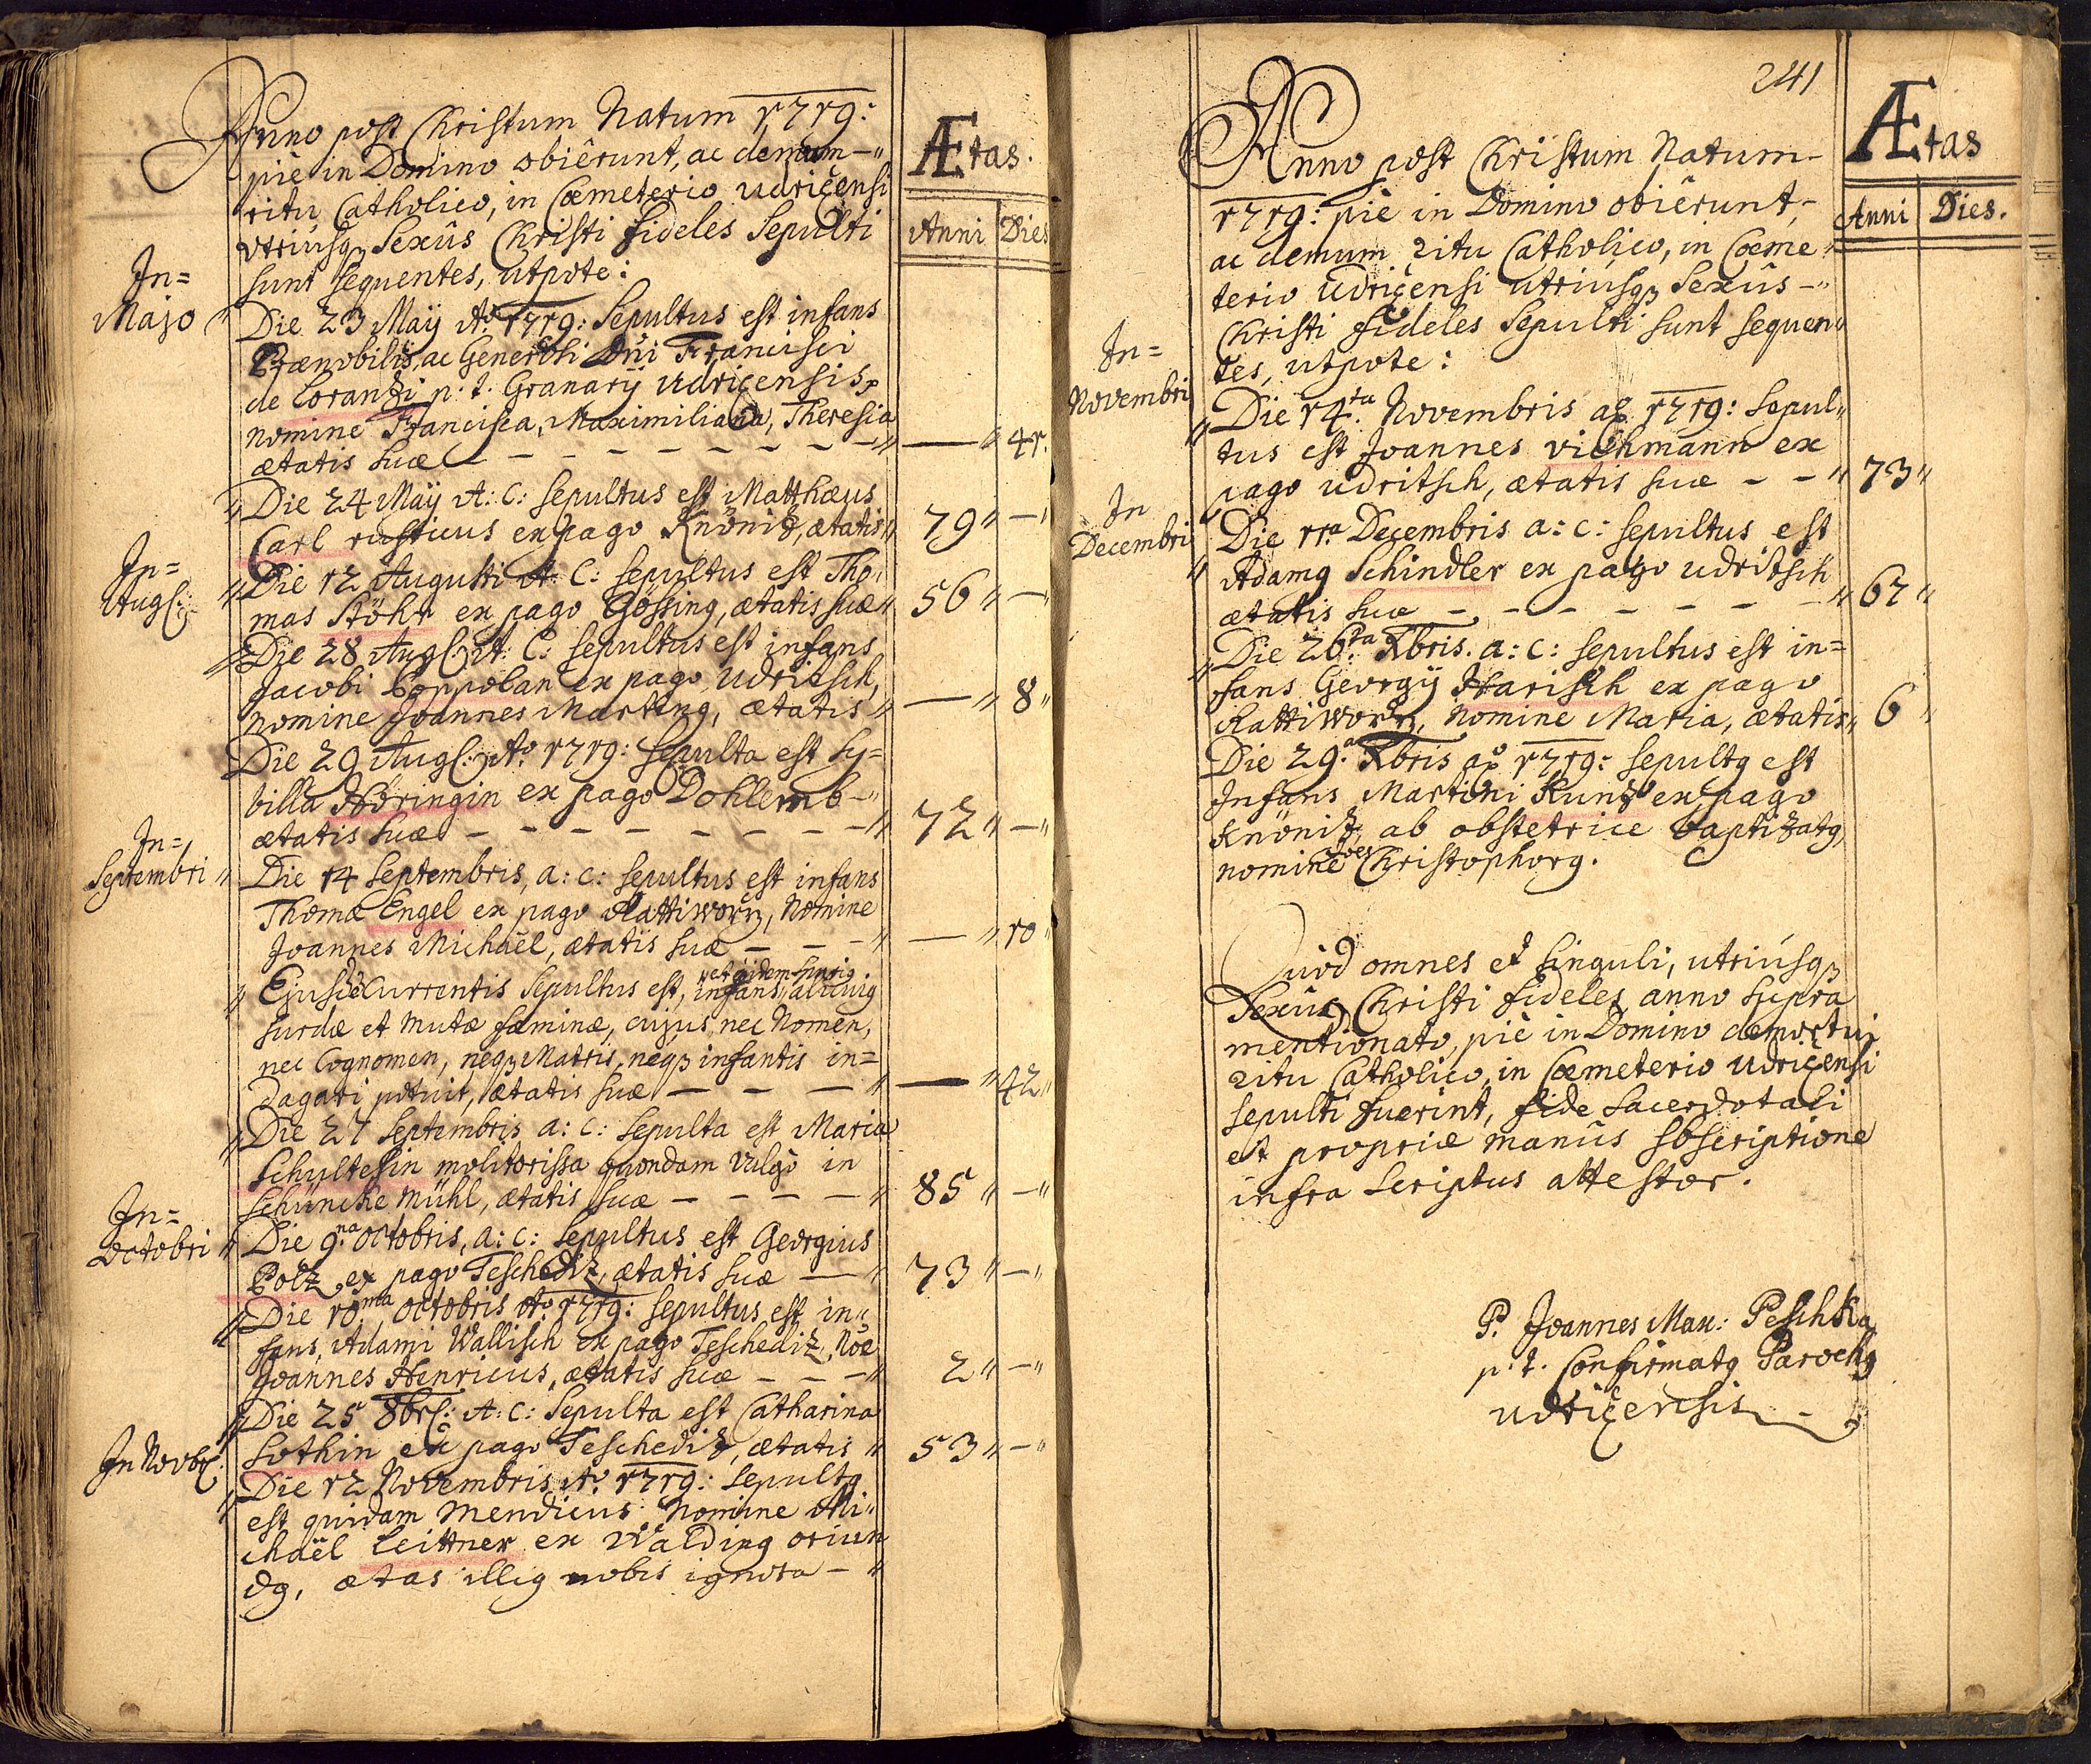 Anno post Christum Natum 1719:
piè in Domino obiêrunt, ac demum
ritu Catholico, in Cœmeterio Udričensi
utriusq; Sexûs Christi fideles Sepulti
sunt sequentes, utpote:
Ætas.
Anni Dies
In=
Majo
Die 23 Maÿ Ao. 1719: Sepultus est infans
Prænobilis, ac Generosi Dni Francisci
de Lorantzi p: t: Granarÿ Udričensis,
nomine Francisca, Maximiliana, Theresia
ætatis suæ — — 41.
Die 24 Maÿ A: C: sepultus est Matthæus
Carl rusticus ex pago Knönitz, ætatis 79 —
In=
Aug:
Die 12 Augusti A: C: sepultus est Tho,,
mas Stöhr ex pago Gössing, ætatis suæ 56 —
Die 28 Aug: A: C: sepultus est infans
Jacobi Poppolan ex pago Udritsch,
nomine Joannes Marting, ætatis — 8
Die 29 Aug: Ao. 1719: sepulta est Sy=
billa Höringin ex pago Dohlemb
ætatis suæ — 72 —
In=
Septembri
Die 14 Septembris, a: c: sepultus est infans
Thomæ Engel ex pago Rattiworz, Nomine
Joannes Michaël, ætatis suæ — — 10
et quidem spurig
Ejusdē Currentis Sepultus est, infans, alicuig
surdæ et mutæ fæminæ, cujus nec Nomen,
nec Cognomen, neq; Matris, neq; infantis in=
dagari potuit, ætatis suæ — — 42
Die 27 Septembris a: c: sepulta est Maria
Schultessin molitorissa quondam vulgò in
Schüncke Mühl, ætatis suæ — 85 —
In=
Octobri
Die 9.na Octobris, a: c: sepultus est Georgius
Polz, ex pago Teschediz, ætatis suæ — 73 —
Die 10.ma Octobris Ao. 1719: sepultus est in,,
fans, Adami Wallisch ex pago Teschediz, Noē
Joannes Henricus, ætatis suæ — 2 —
Die 25 8br: A: C: Sepulta est Catharina
Lothin ex pago Teschediz, ætatis 53 —
In Novb:
Die 12 Novembris Ao. 1719: Sepultg
est quidam mendicus Nomine Mi,,
chaël Leittner ex Walding oriun
dg, ætas illig nobis ignota —
241
Anno post Christum Natum
1719: piè in Domino obiêrunt,
ac demum ritu Catholico, in Cœme,,
terio Udričensi utriusq; Sexûs
Christi fideles Sepulti sunt sequen,,
tes, utpote:
Ætas
Anni Dies.
In=
Novembri
Die 14.ta Novembris ao 1719: Sepul,,
tus est Joannes Vichmann ex
pago Udritsch, ætatis suæ — 73
In
Decembri
Die 11.a Decembris a: c: sepultus est
Adamg Schindler ex pago Udritsch
ætatis suæ — 67
Die 26.ta Xbris. a: c: sepultus est in=
fans Georgÿ Harisch ex pago
Rattiworz, Nomine Maria, ætatis 6
Die 29.a Xbris ao 1719: sepultg est
Infans Martini Kuntz ex pago
Knönitz, ab obstetrice baptizatg,
nomine Joēs Christophorg.
Quod omnes et singuli, utriusq;
Sexûs Christi fideles anno supra
mentionato, piè in Domino demortui
ritu Catholico, in Cœmeterio Udričensi
sepulti fuerint, fide sacerdotali
et propriæ manûs sbscriptione
infra scriptus attestor.
P. Joannes Max: Peschka
p: t: Confirmatg Parochg
Udričensis